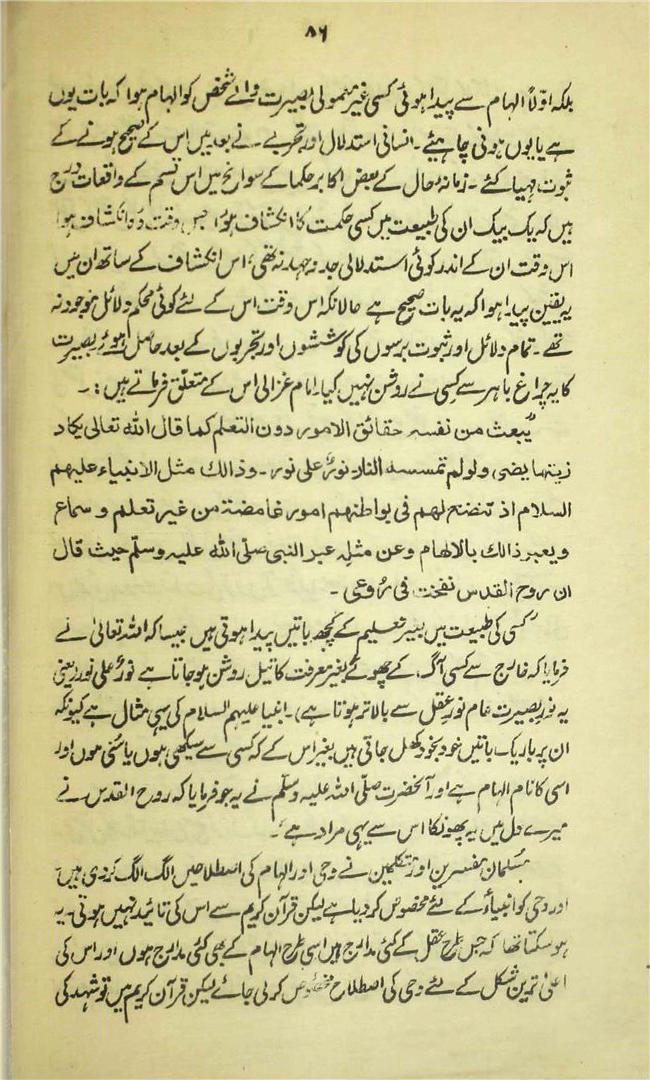 ۸۶
بلکہ اوّلاً الہام سے پیدا ہوئی کسی غیر معمولی بصیرت والے شخص کو الہام ہوا کہ بات یوں
ہے یا یوں ہونی چاہیئے۔ انسانی استدلال اور تجربے نے بعد میں اس کے صحیح ہونے کے
ثبوت مہیا کئے۔ زمانۂ حال کے بعض اکابر حکما کے سوانح میں اس قسم کے واقعات درج
ہیں کہ یک بیک ان کی طبیعت میں کسی حکمت کا انکشاف ہوا جس وقت وہ انکشاف ہوا
اس وقت ان کے اندر کوئی استدلالی جد و جہد نہ تھی، اس انکشاف کے ساتھ ان میں
یہ یقین پیدا ہوا کہ یہ بات صحیح ہے حالانکہ اس وقت اس کے لئے کوئی محکم دلائل موجود نہ
تھے۔ تمام دلائل اور ثبوت برسوں کی کوششوں اور تجربوں کے بعد حاصل ہوئے بصیرت
کا یہ چراغ باہر سے کسی نے روشن نہیں کیا۔ امام غزالی اس کے متعلق فرماتے ہیں:۔
یُبعث من نفسہ حقائق الامور دون التعلم کما قال اللہ تعالی یکاد
زیتہا یضی ولو لم تمسسہ النار۔ نورٌ علی نور۔ وذالک مثل الانبیاء علیہم
السلام اذ تنضح لہم فی بواطنہم امور غامضۃ من غیر تعلم و سماع
و یعبر ذالک بالالھام وعن مثلہ عبر النبی صلی اللہ علیہ وسلم حیث قال
ان روح القدس نفخت فی رُوعی۔
کسی کی طبیعت میں بغیر تعلیم کے کچھ باتیں پیدا ہوتی ہیں جیسا کہ اللہ تعالیٰ نے
فرمایا کہ خارج سے کسی آگ کے چھوئے بغیر معرفت کا تیل روشن ہو جاتا ہے نورٌ علی نور (یعنی
یہ نور بصیرت عام نور عقل سے بالا تر ہوتا ہے)۔ انبیا علیہم السلام کی یہی مثال ہے کیونکہ
ان پر باریک باتیں خود بخود کھل جاتی ہیں بغیر اس کے کہ کسی سے سیکھی ہوں یا سنی ہوں اور
اسی کا نام الہام ہے اور آنحضرت صلی اللہ علیہ وسلم نے یہ جو فرمایا کہ روح القدس نے
میرے دل میں یہ پھونکا اس سے یہی مراد ہے۔
مسلمان مفسرین اور متکلمین نے وحی اور الہام کی اصطلاحیں الگ الگ کر دی ہیں
اور وحی کو انبیاءؑ کے لئے مخصوص کر دیا ہے لیکن قرآن کریم سے اس کی تائید نہیں ہوتی۔ یہ
ہو سکتا تھا کہ جس طرح عقل کے کئی مدارج ہیں اسی طرح الہام کے بھی کئی مدارج ہوں اور اس کی
اعلیٰ ترین شکل کے لئے وحی کی اصطلاح مخصوص کر لی جائے لیکن قرآن کریم میں تو شہد کی